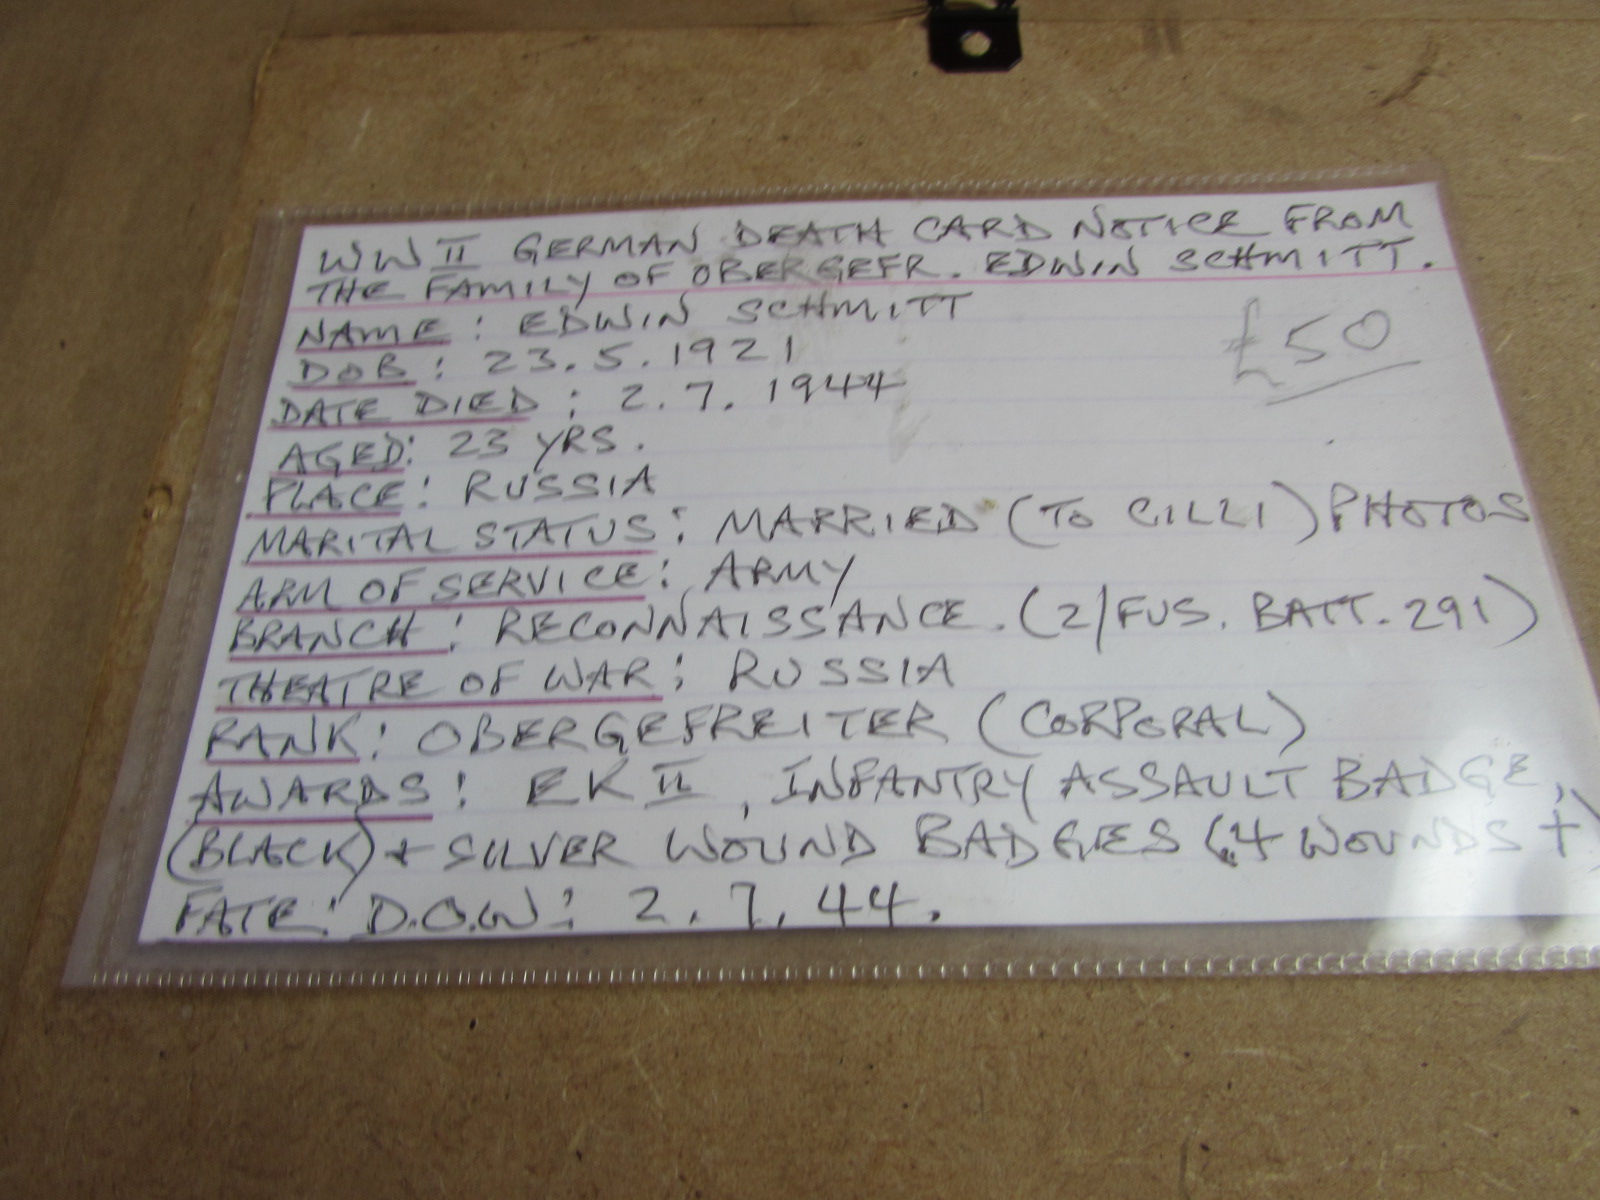 WW II GERMAN DEATH CARD NOTICE FROM
THE FAMILY OF OBERGEFR. EDWIN SCHMITT.
NAME: EDWIN SCHMITT
£50
DOB: 23.5.1921
DATE DIED: 2.7.1944
AGED: 23 YRS.
PLACE: RUSSIA
MARITAL STATUS: MARRIED (TO CILLI) PHOTOS
ARM OF SERVICE: ARMY
BRANCH: RECONNAISSANCE. (2/FUS. BATT. 291)
THEATRE OF WAR: RUSSIA
RANK: OBERGEFREITER (CORPORAL)
AWARDS: EK II, INFANTRY ASSAULT BADGE,
(BLACK) + SILVER WOUND BADGES (4 WOUNDS +)
FATE: D.O.W: 2.7.44.